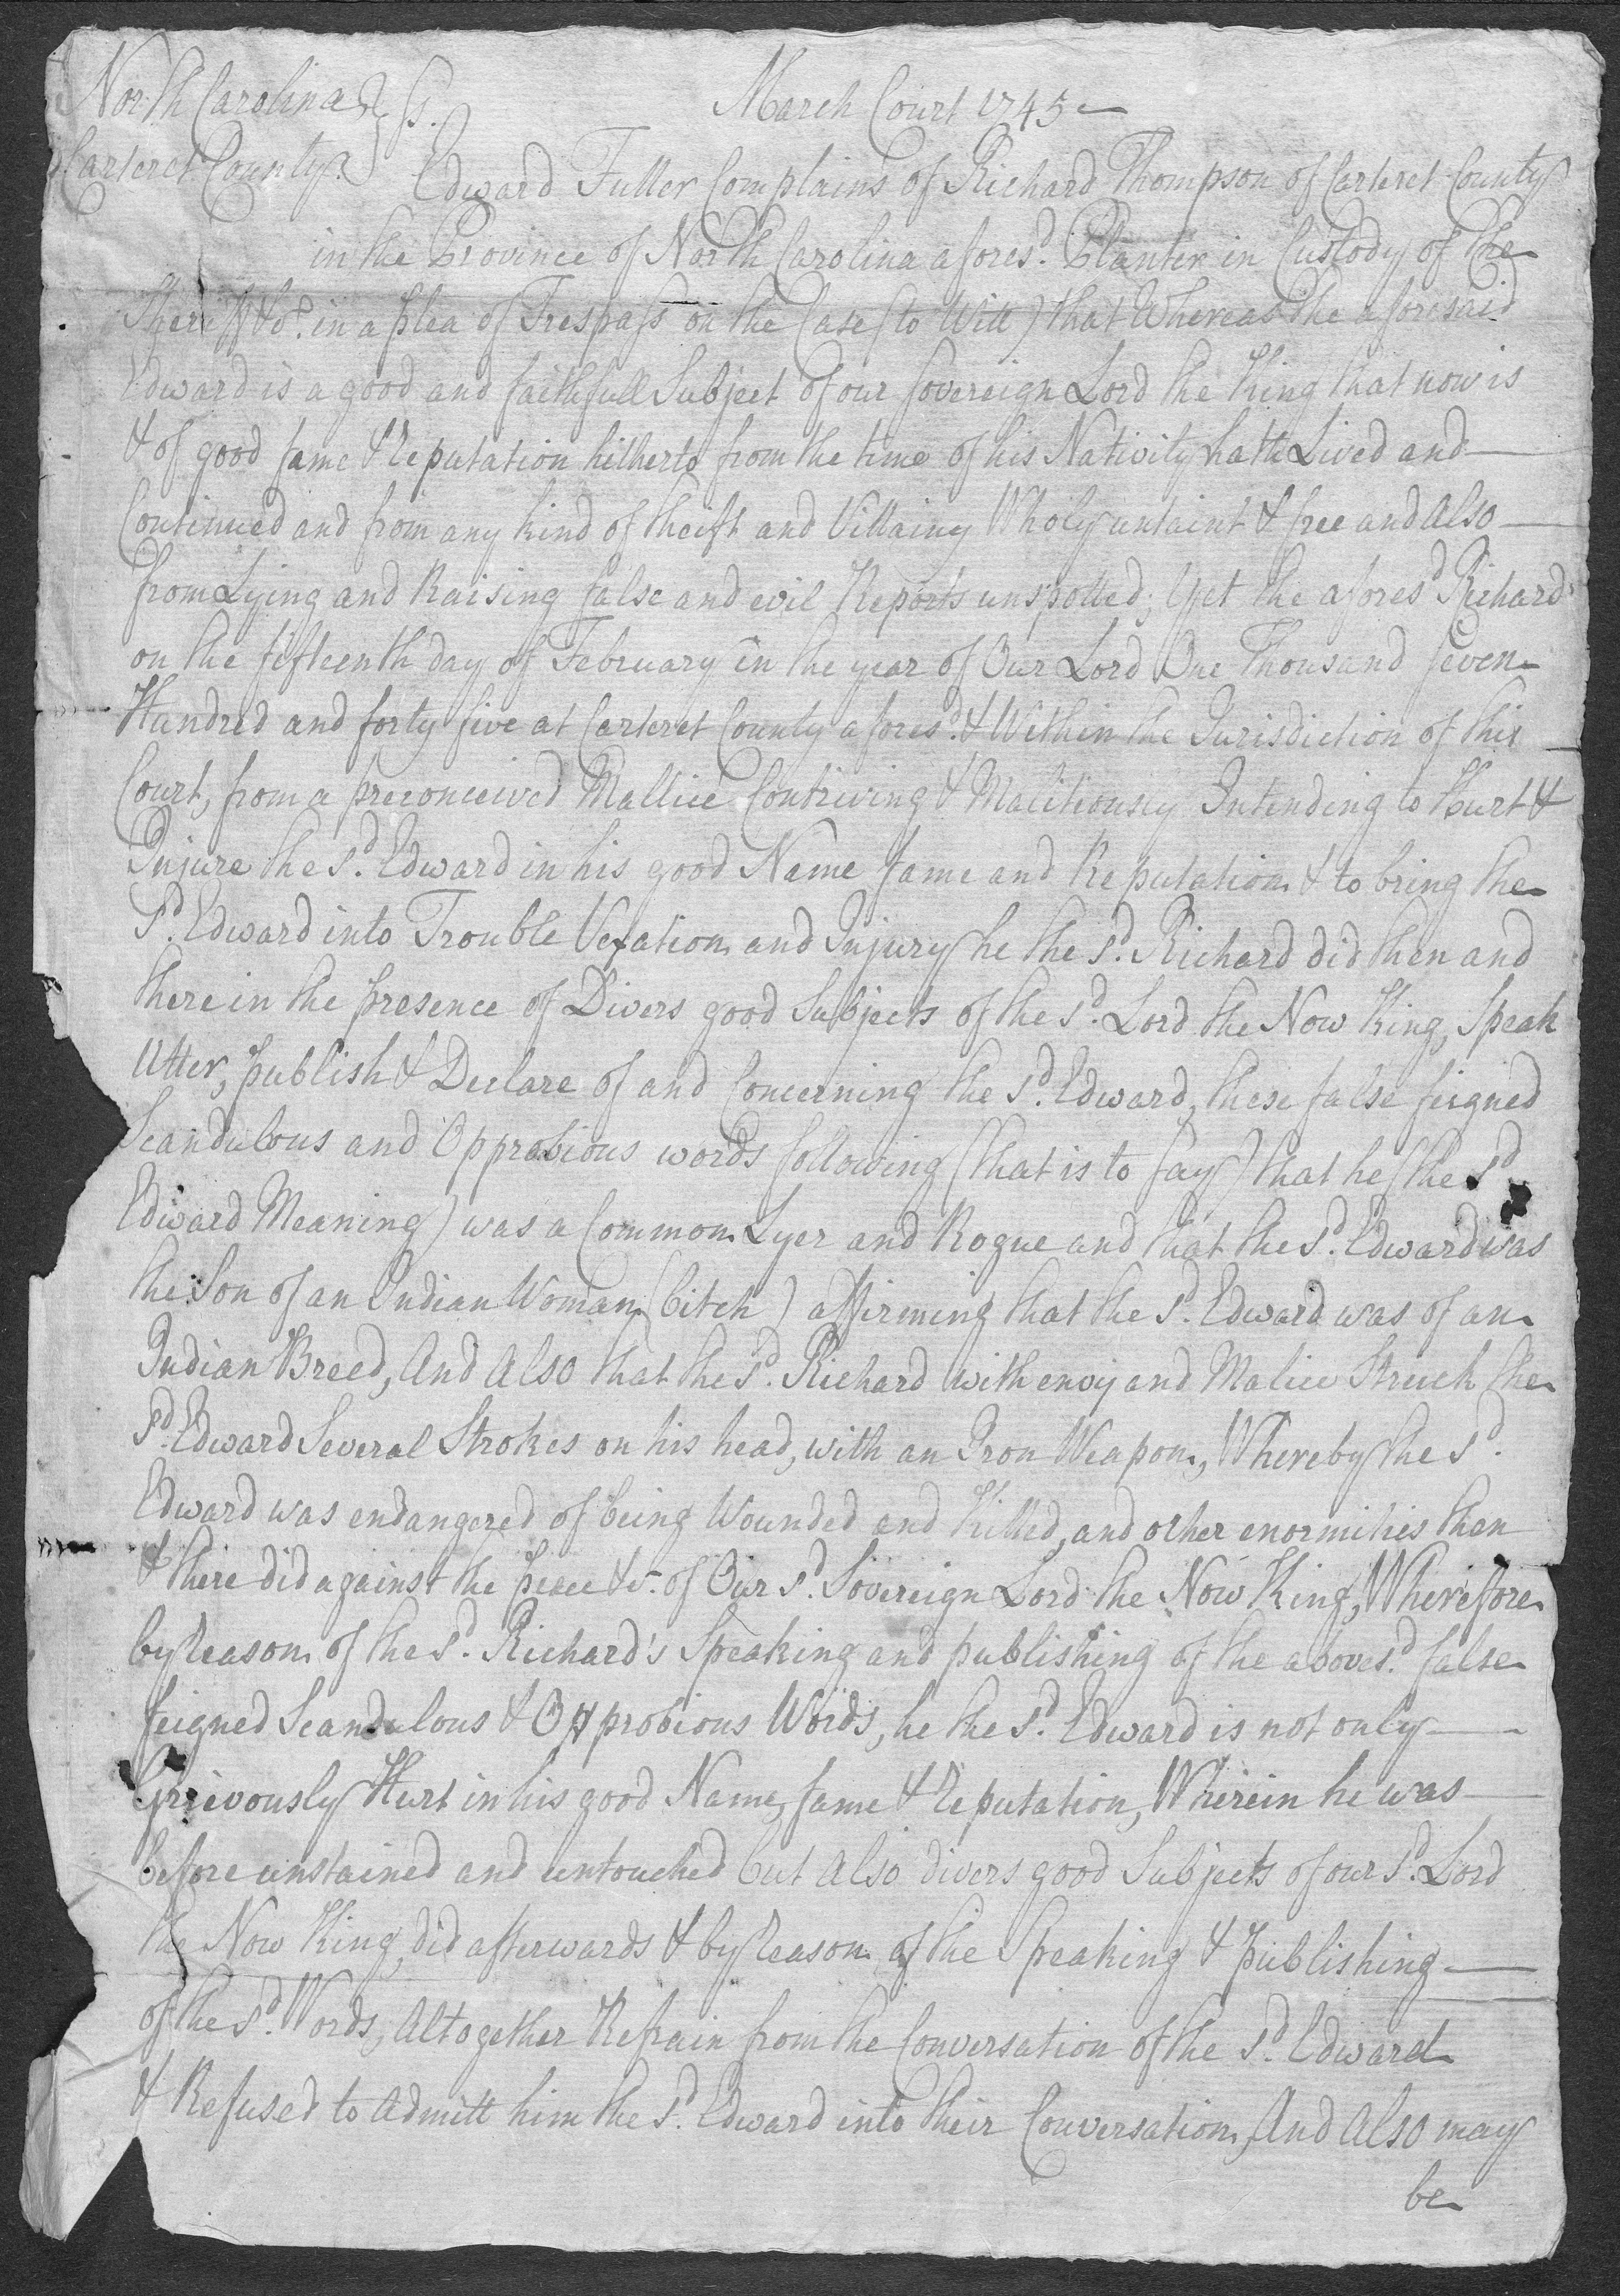 North Carolina } ss. March Court 1745
Carteret County }
Edward Fuller Complains of Richard Thompson of Carteret County
in the Province of North Carolina afores.d Planter in Custody of the
Sheriff &c. in a plea of Trespass on the Case (to Will) that Whereas the aforesaid
Edward is a good and faithfull Subject of our sovereign Lord the King that now is
& of good fame & Reputation hitherto from the time of his Nativity hath Lived and
Continued and from any kind of theift and Villainy Wholy untaint & free and Also
from Lying and Raising false and evil Reports unspotted; Yet the afores.d Richard
on the fifteenth day of February in the year of Our Lord One Thousand seven
Hundred and forty five at Carteret County afores.d & Within the Jurisdiction of this
Court, from a preconceived Mallice Contriving & Malitiously Intending to Hurt &
Injure the s.d Edward in his good Name fame and Reputation & to bring the
s.d Edward into Trouble Vexation and Injury he the s.d Richard did then and
there in the presence of Divers good Subjects of the s.d Lord the Now King, Speak
Utter, publish & Declare of and Concerning the s.d Edward, these false feigned
Scandulous and Opprobious words following (that is to say) that he (the s.d
Edward Meaning) was a Common Lyer and Rogue and that the s.d Edward was
the Son of an Indian Woman (bitch) affirming that the s.d Edward was of an
Indian Breed, And Also that the s.d Richard with envy and Malice Struck the
s.d Edward Several Strokes on his head, with an Iron Weapon, Whereby the s.d
Edward was endangered of being Wounded and Killed, and other enormities then
& there did against the peace &c. of Our s.d Sovereign Lord the Now King, Wherefore
by Reason of the s.d Richard's Speaking and publishing of the aboves.d false
feigned Scandulous & Opprobious Words, he the s.d Edward is not only
Grievously Hurt in his good Name, fame & Reputation, Wherein he was
before unstained and untouched but Also divers good Subjects of our s.d Lord
the Now King, did afterwards & by Reason of the Speaking & publishing
of the s.d Words, Altogether Refrain from the Conversation of the s.d Edward
& Refused to Admitt him the s.d Edward into their Conversation, And Also may
be